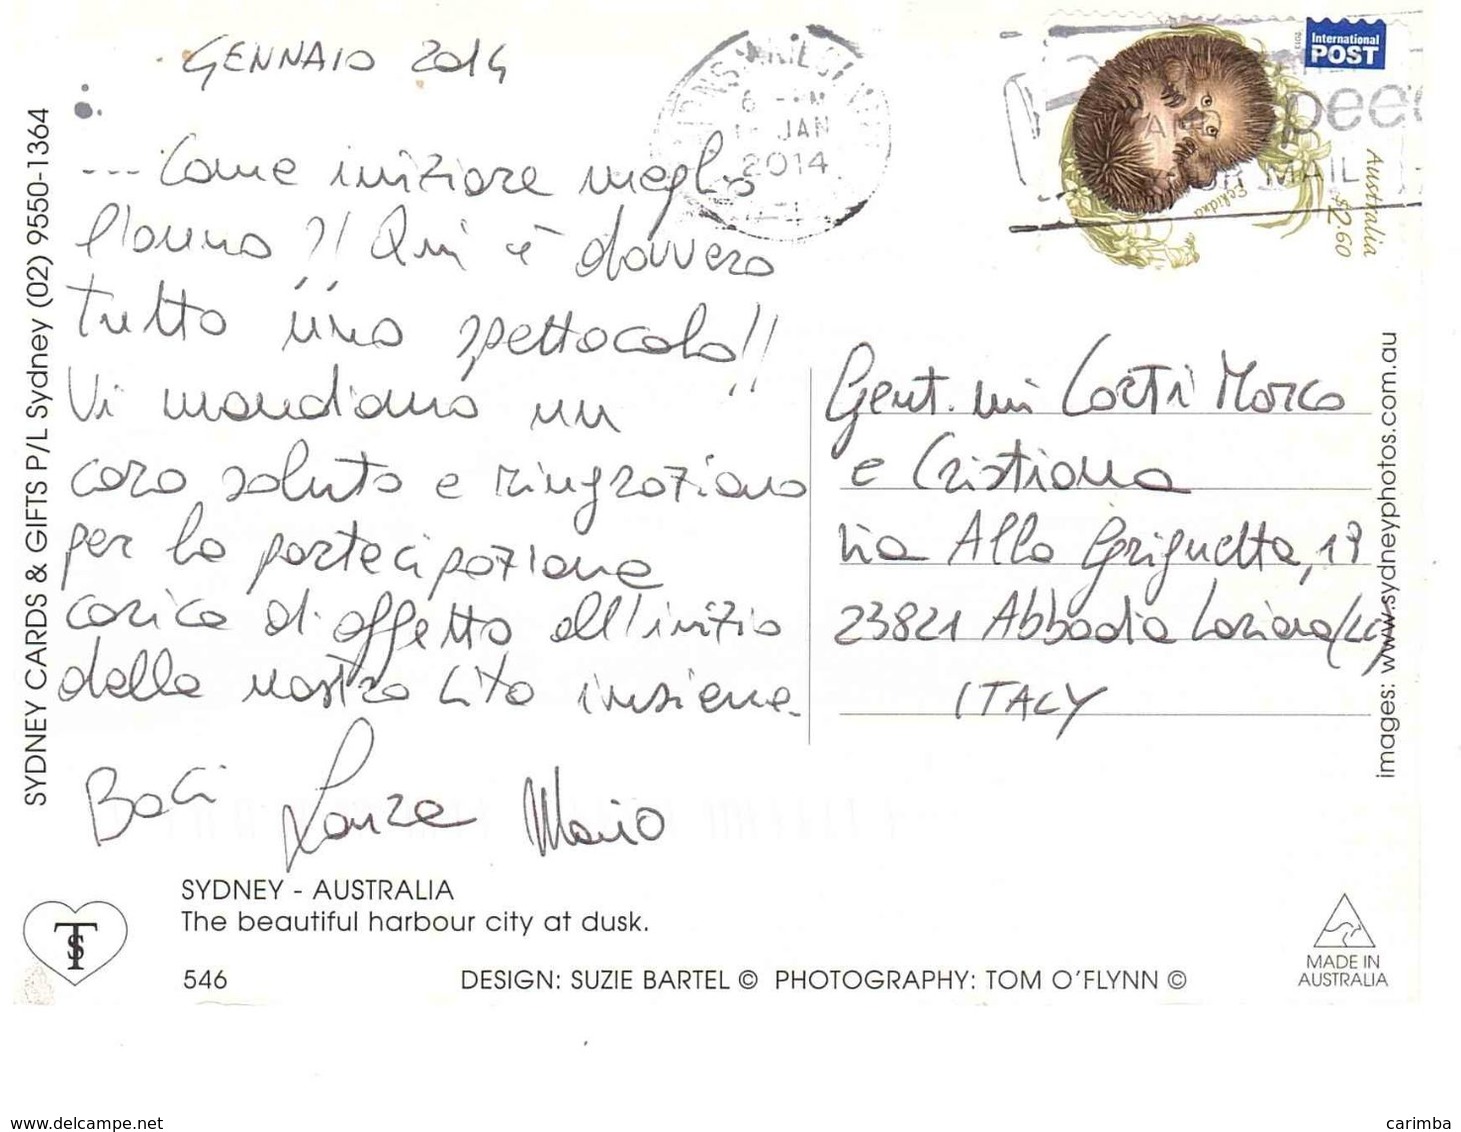 GENNAIO 2014
--- Come iniziare meglio
l'anno?!! Qui è davvero
tutto uno spettacolo!!
Vi mandiamo un
caro saluto e ringraziamo
per la partecipazione
carica di affetto all'inizio
della nostra vita insieme.
Baci Mario
JAN
2014
International
POST
2013
Echidna
Australia
$2.60
MAIL
Gent.mi Corti Marco
e Cristiana
Via Alla Griguetta, 19
23821 Abbadia Lariana (LC)
ITALY
SYDNEY CARDS & GIFTS P/L Sydney (02) 9550-1364
images: www.sydneyphotos.com.au
SYDNEY - AUSTRALIA
The beautiful harbour city at dusk.
546 DESIGN: SUZIE BARTEL © PHOTOGRAPHY: TOM O'FLYNN ©
MADE IN
AUSTRALIA
www.delcampe.net
carimba